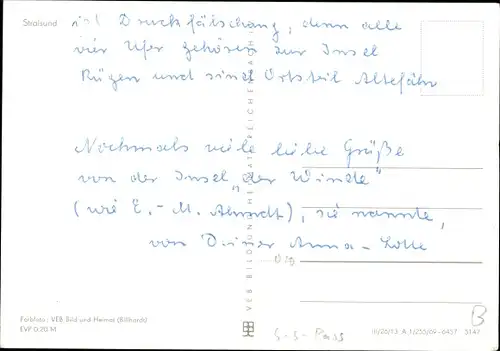 Stralsund
ist Druckfälschung, denn alle
vier Ufer gehören zur Insel
Rügen und sind Ortsteil Altefähr
Nochmals viele liebe Grüße
von der Insel „der Winde"
(wie E.-M. Arndt), sie nannte,
von Deiner Anna-Lotte
VEB BILD UND HEIMAT REICHENBACH i. V.
Farbfoto: VEB Bild und Heimat (Billhardt)
EVP 0,20 M
III/26/13 A 1/255/69 6457 5147
B